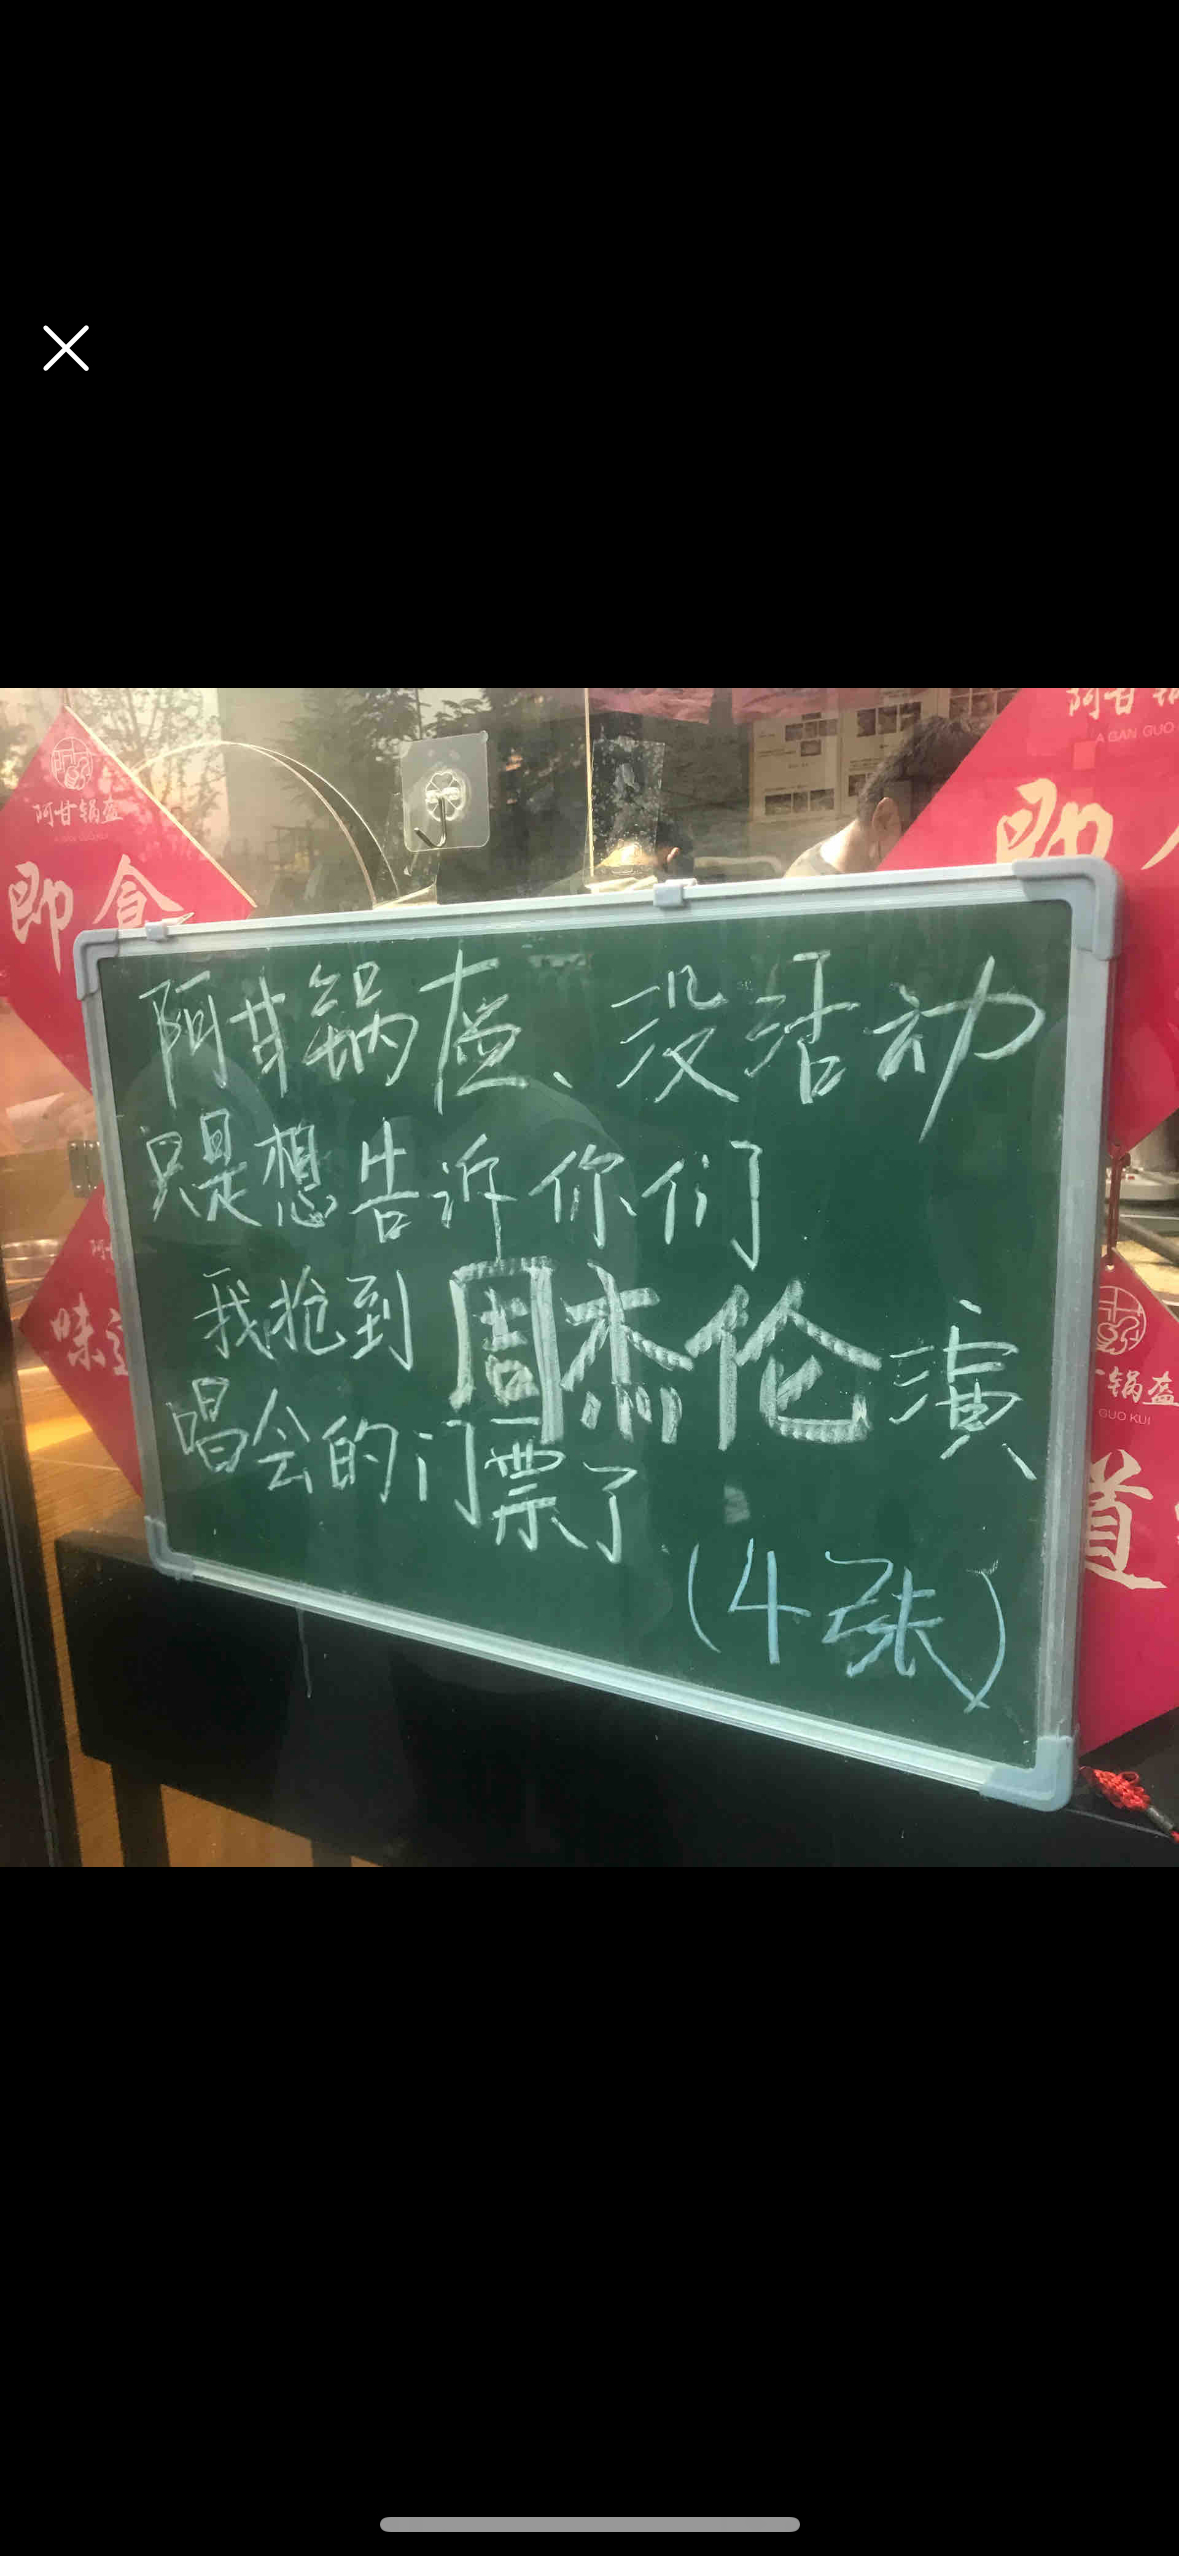 阿甘锅
A GAN GUO
即
阿甘锅盔
即食
阿甘锅盔、没活动
只是想告诉你们
我抢到周杰伦演
唱会的门票了
(4张)
味道
锅盔
GUO KUI
道